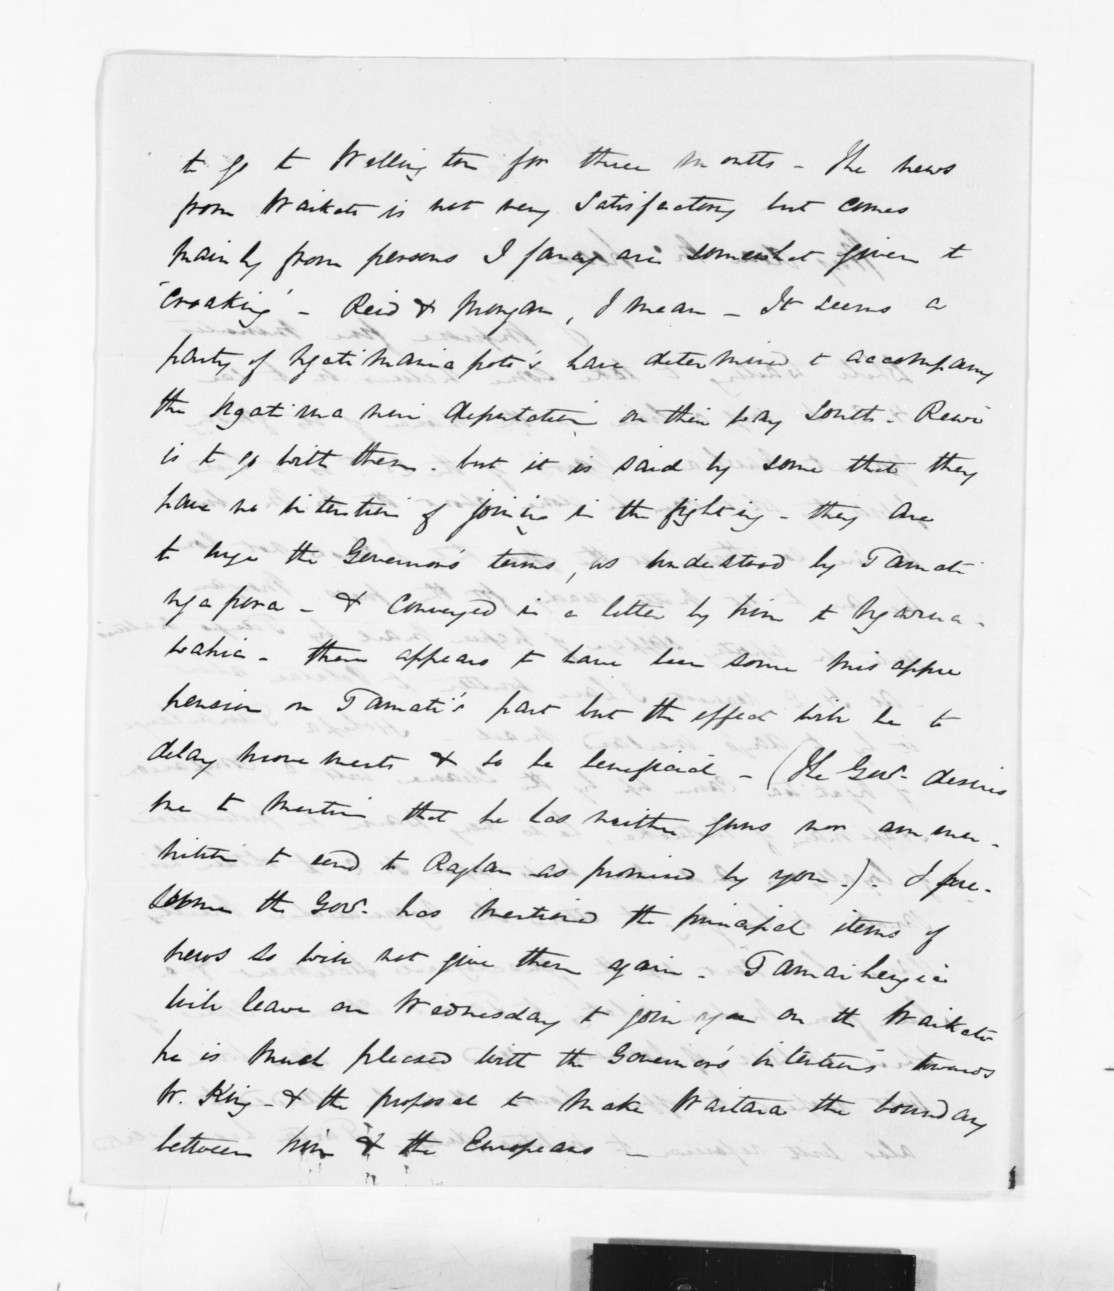 to go to Wellington for three months - The news
from Waikato is not very satisfactory but comes
mainly from persons I fancy are somewhat given to
'croaking' - Reid & Morgan, I mean - It seems a
party of Ngatimaniapoto's have determined to accompany
the Ngatimaneri deputation on their way South - Rewi
is to go with them. but it is said by some that they
have no intention of joining in the fighting - they are
to urge the Governor's terms, as understood by Tamati
Ngapora - & conveyed in a letter by him to Ngarua-
wahia - there appears to have been some misappre
hension on Tamati's part but the effect will be to
delay movements & so be beneficial - (The Govr. desires
me to mention that he has neither guns nor ammu-
nition to send to Raglan as promised by you.). I pre-
sume the Govr. has mentioned the principal items of
news so will not give them again - Tamaihengia
will leave on Wednesday to join you on the Waikato
he is much pleased with the Governor's intentions towards
W. King - & the proposal to make Waitara the boundary
between him & the Europeans -